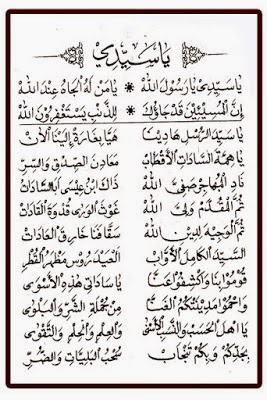 يَا سَيِّدِيْ
يَاسَيِّدِيْ يَارَسُوْلَ اللهْ * يَامَنْ لَهُ الْجَاهُ عِنْدَ اللهْ
إِنَّ الْمُسِيْئِيْنَ قَدْ جَاؤُكْ * لِلذَّنْبِ يَسْتَغْفِرُوْنَ اللهْ
يَا سَيِّدَ الرُّسْلِ هَادِيْنَا هَيَّا بِغَارَةْ إِلَيْنَا الْآنْ
يَاهِمَّةَ السَّادَاتِ الْأَقْطَابْ مَعَادِنَ الصِّدْقِ وَالسِّرِّ
نَادِ الْمُهَاجِرْ صَفِيَّ اللهْ ذَاكَ ابْنَ عِيْسٰى أَبَا السَّادَاتْ
ثُمَّ الْمُقَدَّمْ وَلِيَّ اللهْ غَوْثَ الْوَرٰى قُدْوَةَ الْقَادَاتْ
ثُمَّ الْوَجِيْهَ لِدِيْنِ اللهْ سَقَّافَنَا خَارِقَ الْعَادَاتْ
السَّيِّدَ الْكَامِلَ الْأَوَّابْ الْعَيْدَرُوْسَ مَظْهَرَ الْقُطْرِ
قُوْمُوْا بِنَا وَاكْشِفُوْا عَنَّا يَا سَادَاتِيْ هٰذِهِ الْأَسْوٰى
وَاحْمُوْا مَدِيْنَتَكُمُ الْغَنَّا مِنْ جُمْلَةِ الشَّرِّ وَالْبَلْوٰى
يَا أَهْلَ الْحَسَبْ وَالنَّسَبْ الْأَسْنٰى وَالْعِلْمِ وَالْحِلْمِ وَالتَّقْوٰى
بِجَدِّكُمْ وَبِكُمْ تَنْجَابْ سُحْبُ الْبَلِيَّاتِ وَالضُّرِّ